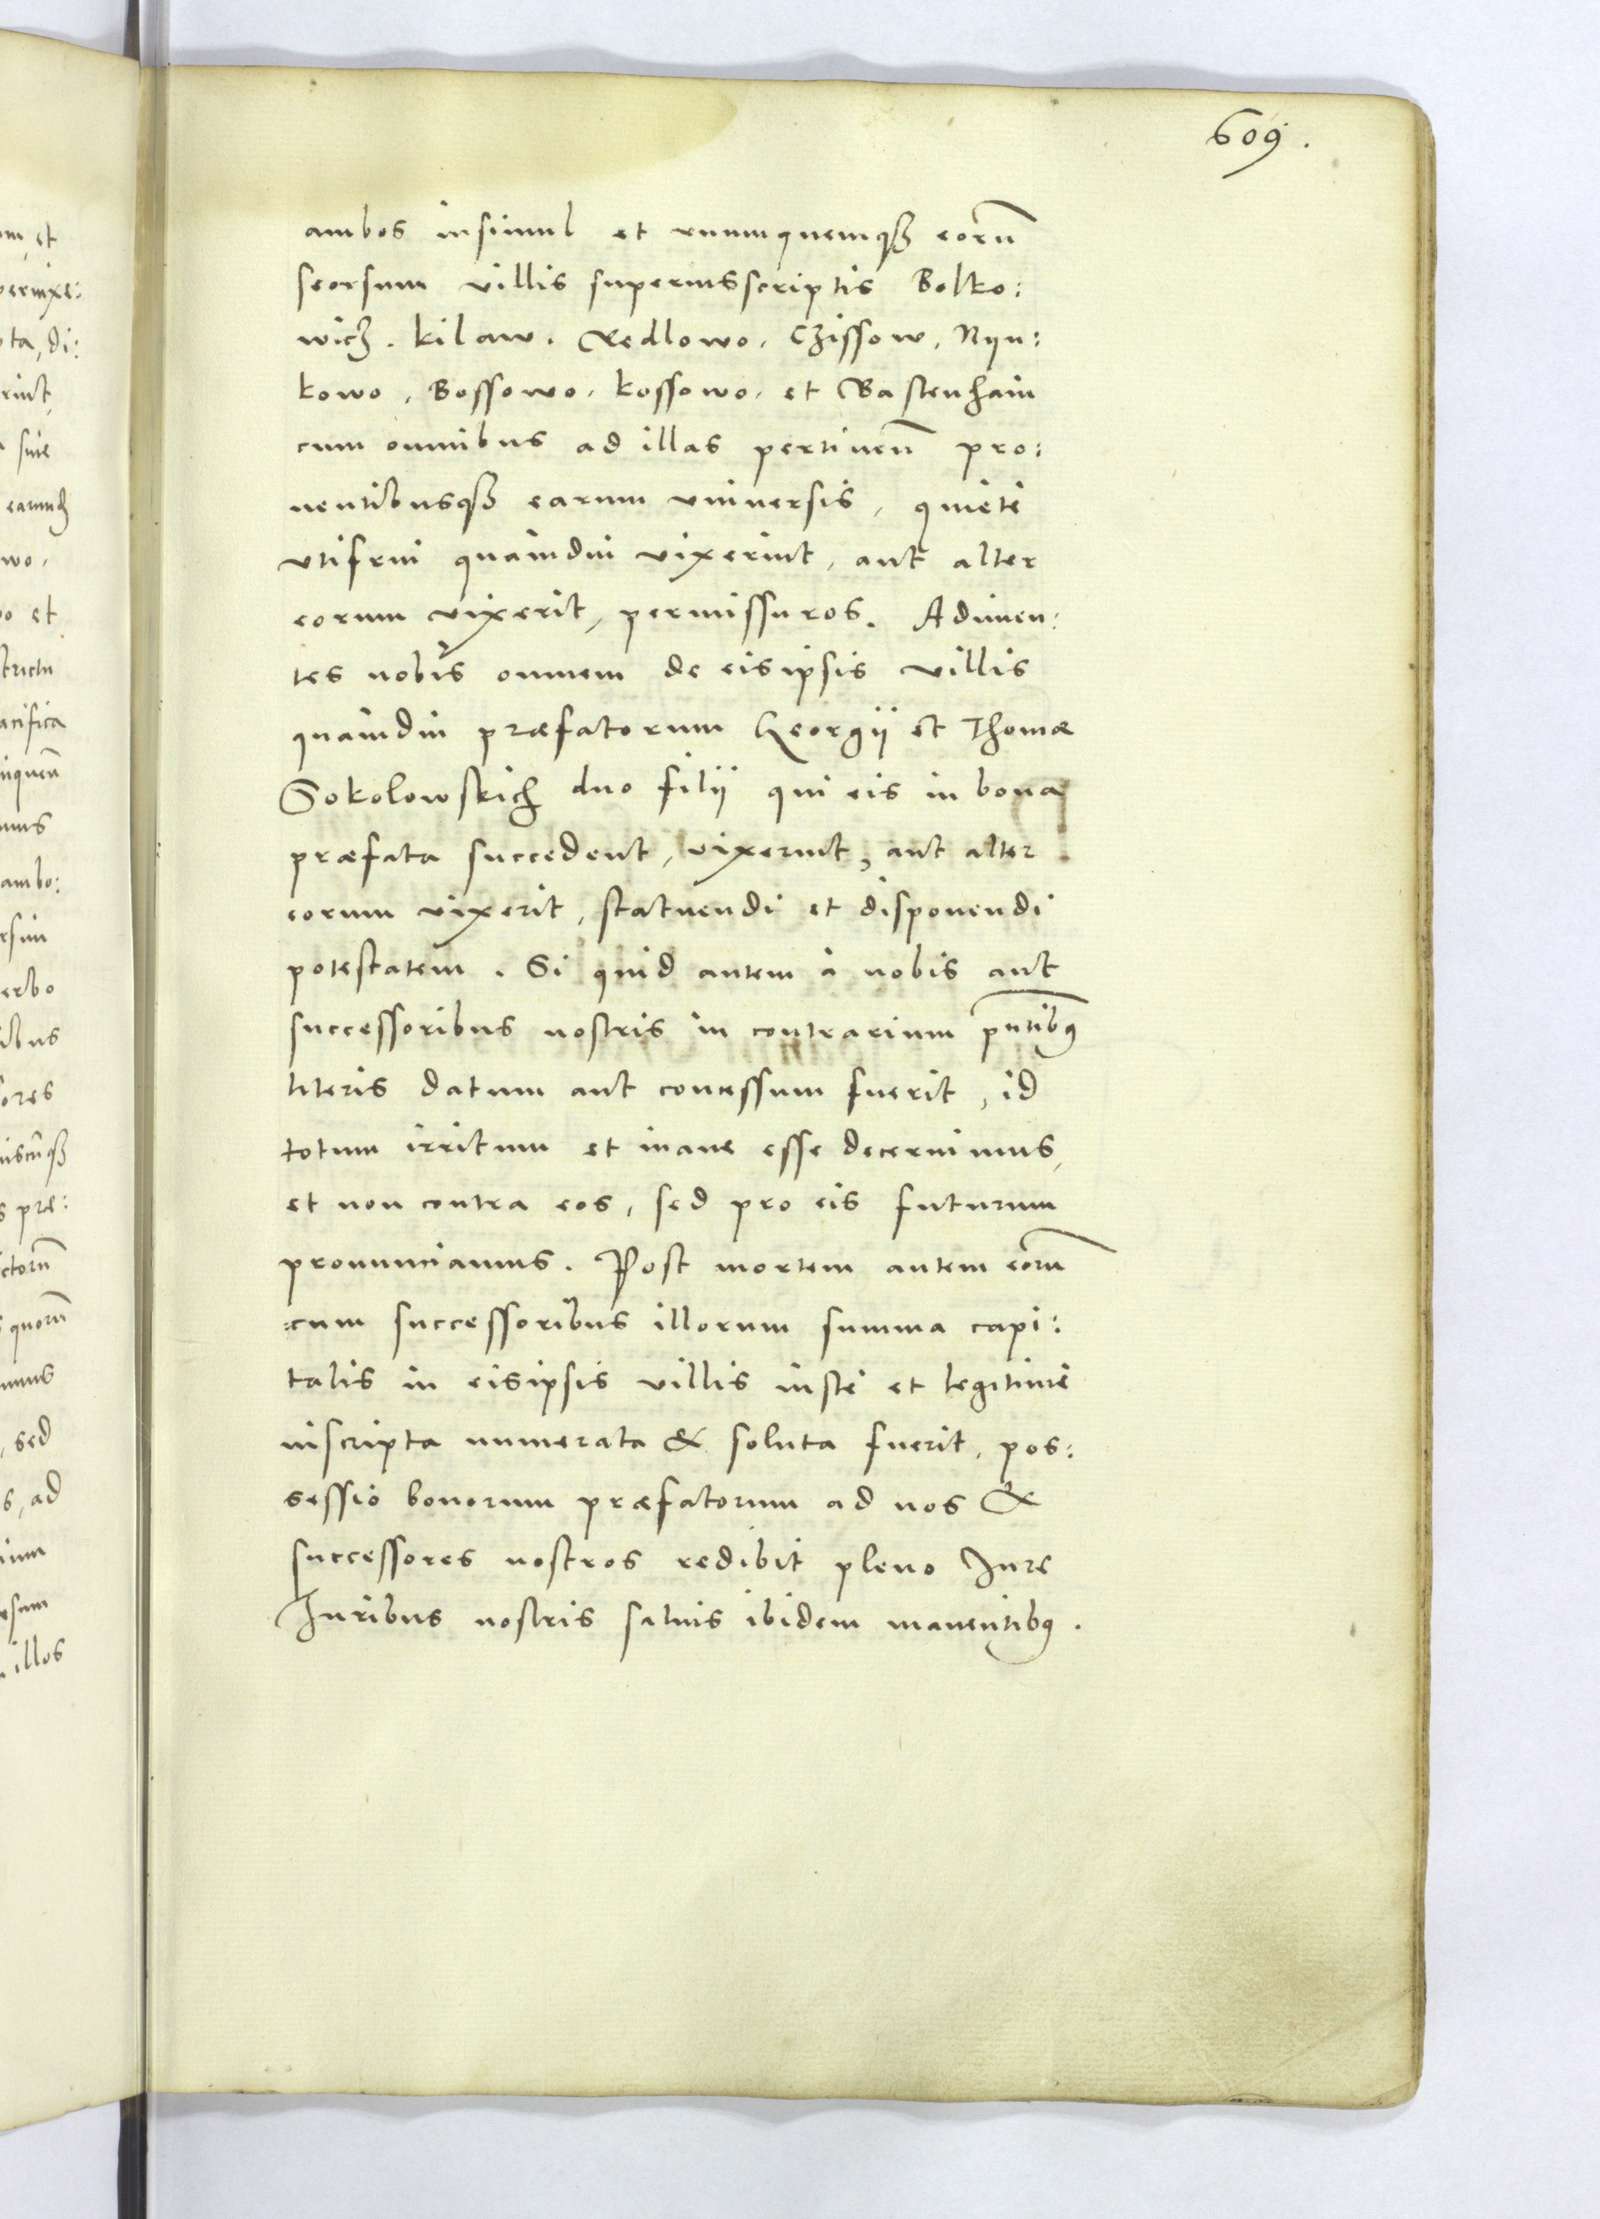 609.
ambos insimul et vnumquemqꝫ eorū
seorsum villis superiusscriptis Bolko:
wicz. kilaw. Redlowo. Czissow, Nyn:
kowo, Bossowo. kossowo. et Wastenhain
cum omnibus ad illas pertinen̄ pro:
uentibusqꝫ earum vniuersis, quiete
vtifrui quamdiu vixerint, aut alter
eorum vixerit, permissuros. Adimen:
tes nobis omnem de eisipsis villis
quamdiu præfatorum Georgij et Thomæ
Sokolowskich duo filij qui eis in bona
præfata succedent, vixerint, aut alter
eorum vixerit, statuendi et disponendi
potestatem. Si quid autem à nobis aut
successoribus nostris in contrarium pn̄tibꝰ
literis datum aut concessum fuerit, id
totum irritum et inane esse decernimus,
et non contra eos, sed pro eis futurum
pronunciamus. Post mortem autem eorū
cum successoribus illorum summa capi:
talis in eisipsis villis iuste et legitime
inscripta numerata & soluta fuerit, pos:
sessio bonorum præfatorum ad nos &
successores nostros redibit pleno Iure
Iuribus nostris saluis ibidem manentibꝰ.